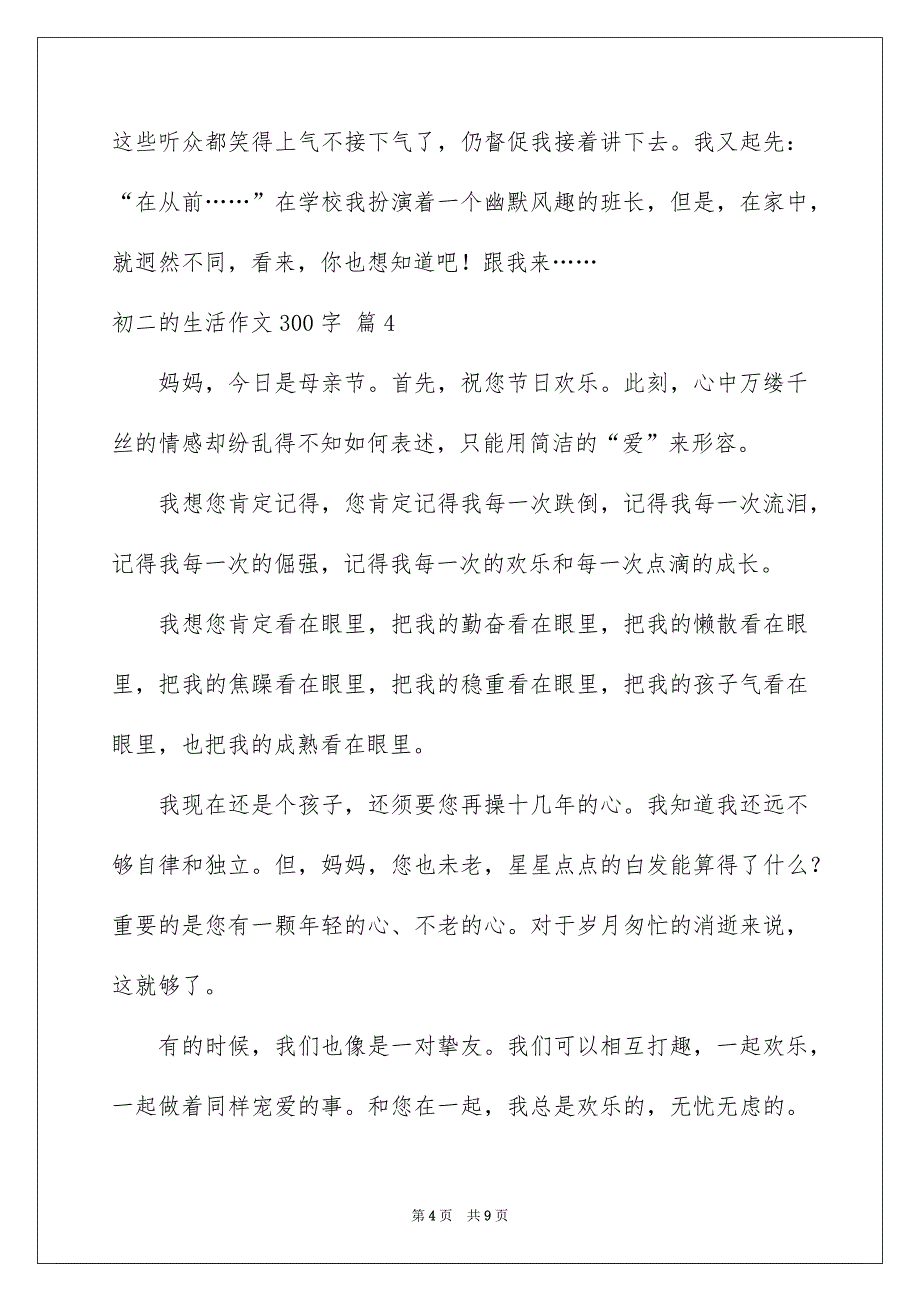 这些听众都笑得上气不接下气了，仍督促我接着讲下去。我又起先：
“在从前……”在学校我扮演着一个幽默风趣的班长，但是，在家中，
就迥然不同，看来，你也想知道吧！跟我来……
初二的生活作文300字 篇4
妈妈，今日是母亲节。首先，祝您节日欢乐。此刻，心中万缕千
丝的情感却纷乱得不知如何表述，只能用简洁的“爱”来形容。
我想您肯定记得，您肯定记得我每一次跌倒，记得我每一次流泪，
记得我每一次的倔强，记得我每一次的欢乐和每一次点滴的成长。
我想您肯定看在眼里，把我的勤奋看在眼里，把我的懒散看在眼
里，把我的焦躁看在眼里，把我的稳重看在眼里，把我的孩子气看在
眼里，也把我的成熟看在眼里。
我现在还是个孩子，还须要您再操十几年的心。我知道我还远不
够自律和独立。但，妈妈，您也未老，星星点点的白发能算得了什么？
重要的是您有一颗年轻的心、不老的心。对于岁月匆忙的消逝来说，
这就够了。
有的时候，我们也像是一对挚友。我们可以相互打趣，一起欢乐，
一起做着同样宠爱的事。和您在一起，我总是欢乐的，无忧无虑的。
第4页 共9页